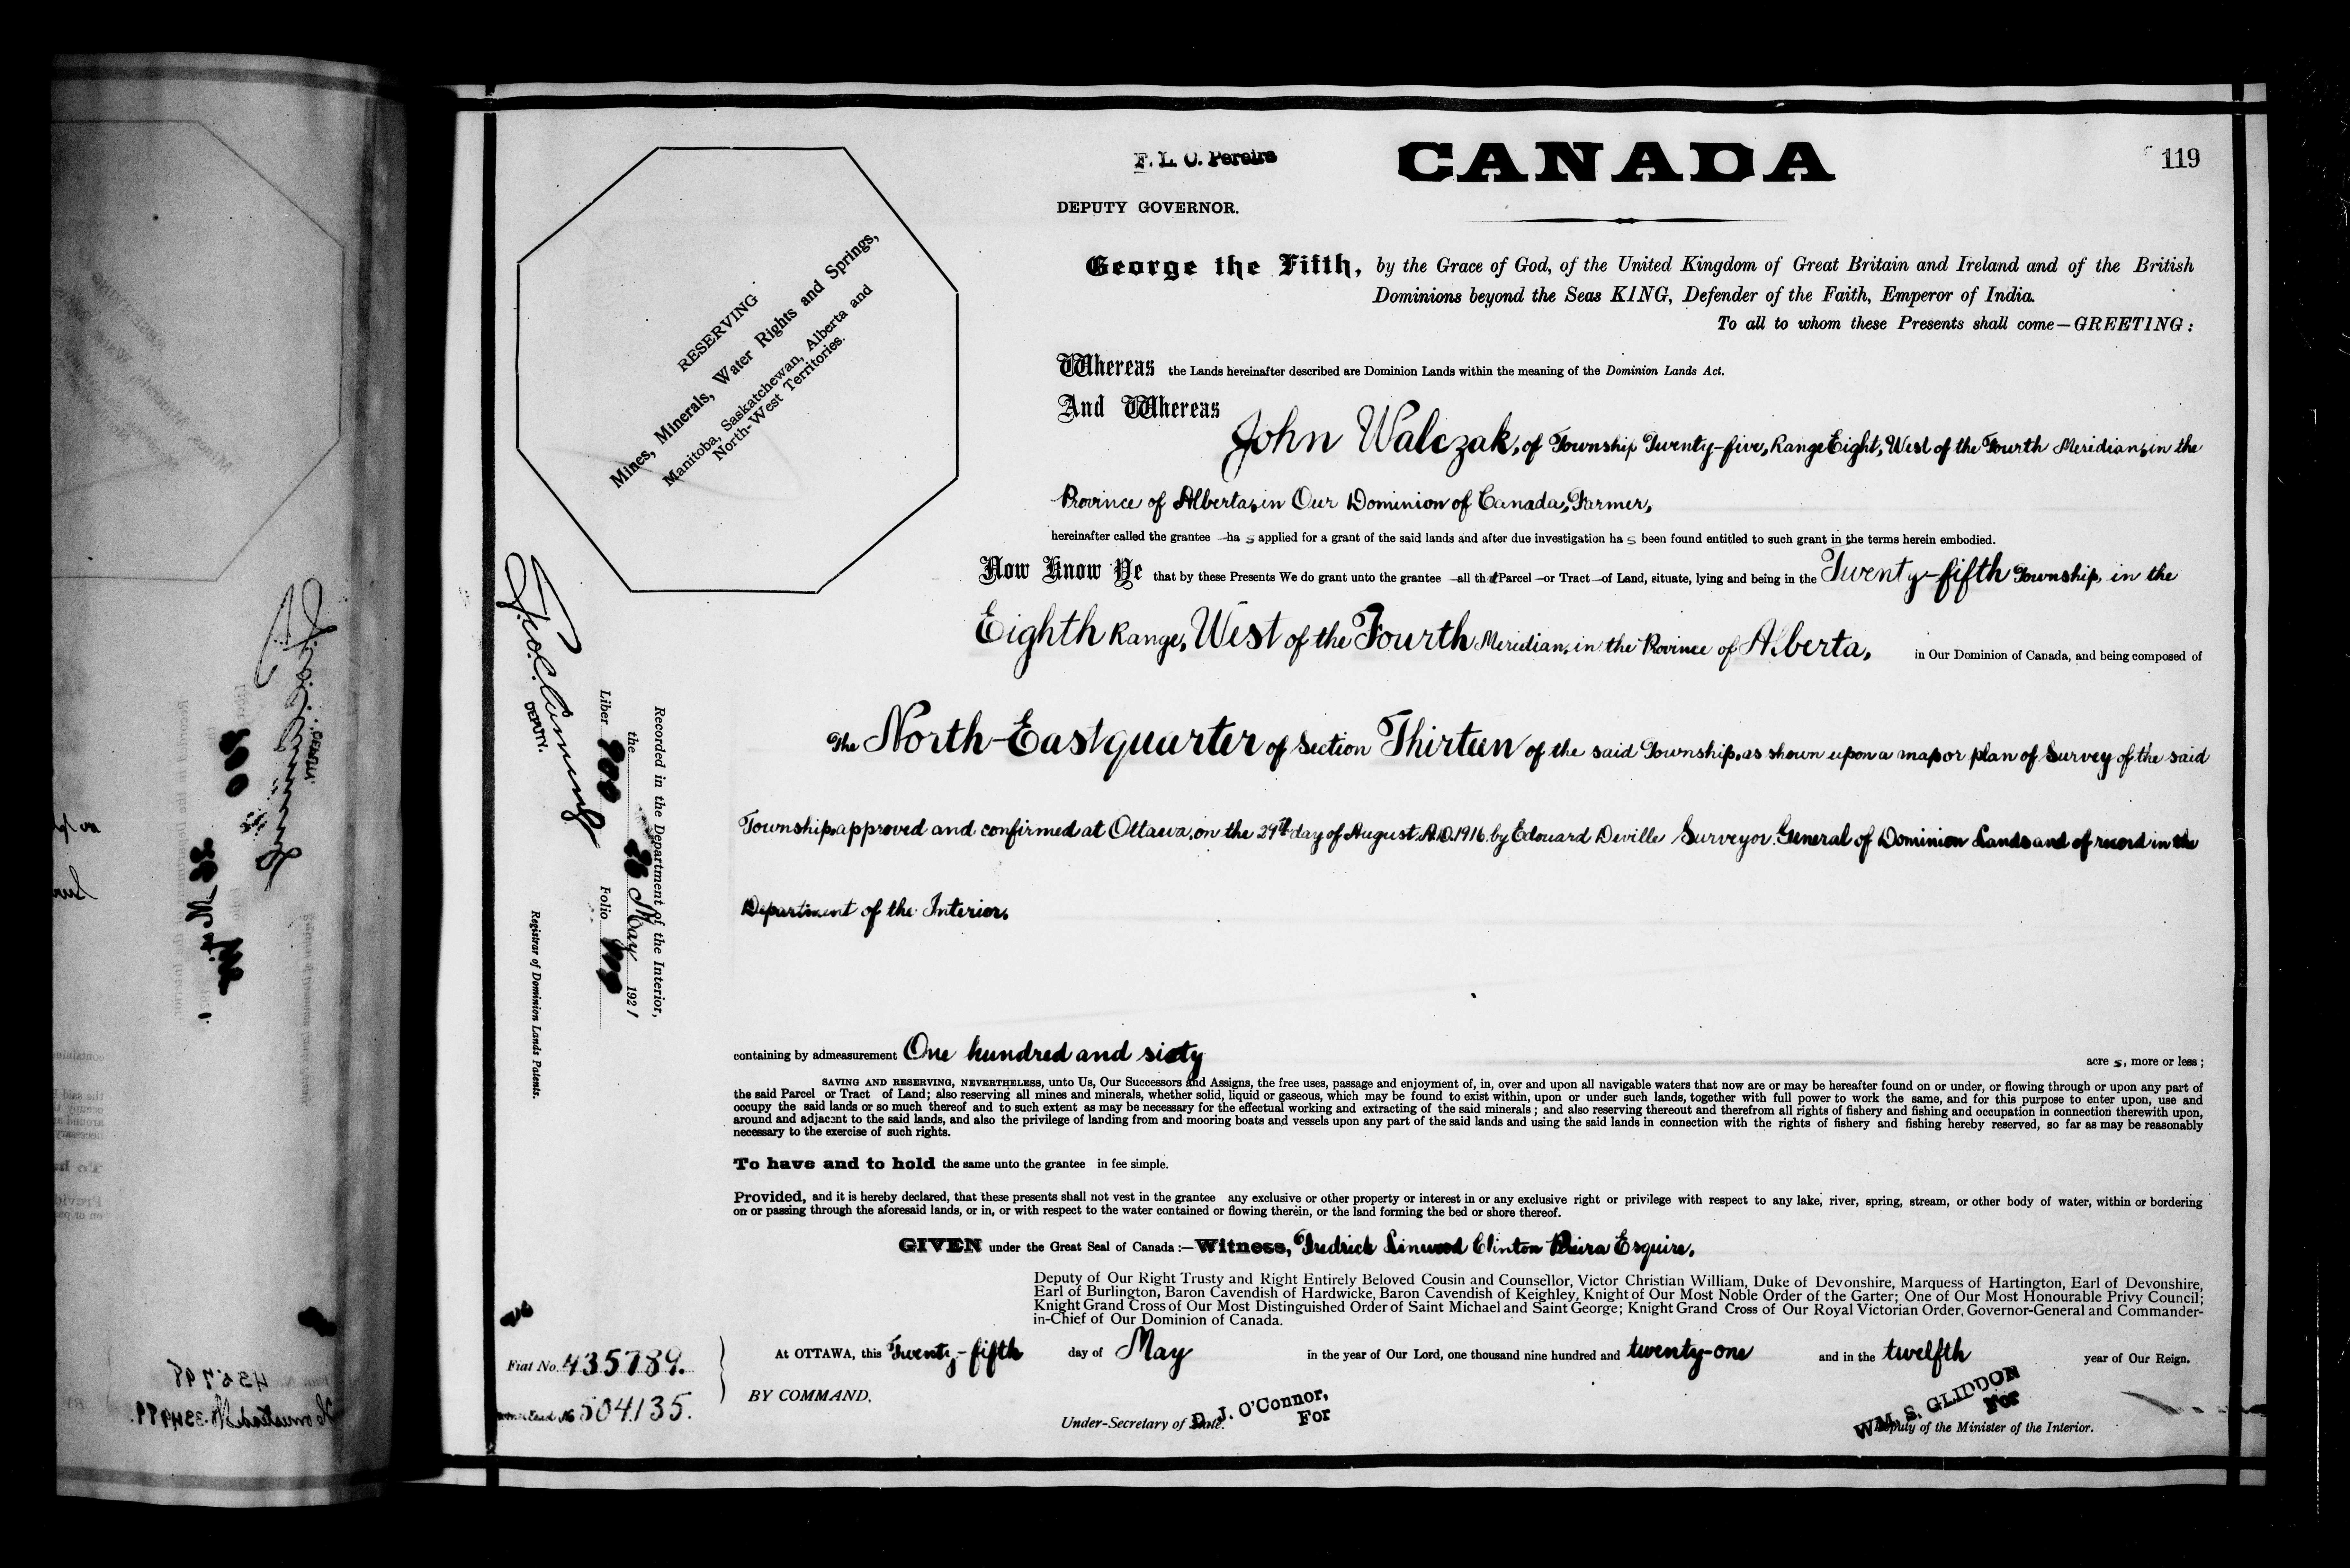 F. L. C. Pereira
CANADA
119
DEPUTY GOVERNOR.
RESERVING
Mines, Minerals, Water Rights and Springs,
Manitoba, Saskatchewan, Alberta and
North-West Territories.
George the Fifth, by the Grace of God, of the United Kingdom of Great Britain and Ireland and of the British
Dominions beyond the Seas KING, Defender of the Faith, Emperor of India.
To all to whom these Presents shall come—GREETING:
Whereas the Lands hereinafter described are Dominion Lands within the meaning of the Dominion Lands Act.
And Whereas
John Walczak, of Township Twenty-five, Range Eight, West of the Fourth Meridian, in the
Province of Alberta, in Our Dominion of Canada, Farmer,
hereinafter called the grantee —ha s applied for a grant of the said lands and after due investigation ha s been found entitled to such grant in the terms herein embodied.
Now Know Ye that by these Presents We do grant unto the grantee —all that Parcel —or Tract —of Land, situate, lying and being in the Twenty-fifth Township, in the
Eighth Range, West of the Fourth Meridian, in the Province of Alberta, in Our Dominion of Canada, and being composed of
The North-East quarter of Section Thirteen of the said Township, as shown upon a map or plan of Survey of the said
Township, approved and confirmed at Ottawa, on the 29th day of August A.D. 1916. by Edouard Deville Surveyor General of Dominion Lands and of record in the
Department of the Interior.
containing by admeasurement One hundred and sixty acre s, more or less;
SAVING AND RESERVING, NEVERTHELESS, unto Us, Our Successors and Assigns, the free uses, passage and enjoyment of, in, over and upon all navigable waters that now are or may be hereafter found on or under, or flowing through or upon any part of
the said Parcel or Tract of Land; also reserving all mines and minerals, whether solid, liquid or gaseous, which may be found to exist within, upon or under such lands, together with full power to work the same, and for this purpose to enter upon, use and
occupy the said lands or so much thereof and to such extent as may be necessary for the effectual working and extracting of the said minerals; and also reserving thereout and therefrom all rights of fishery and fishing and occupation in connection therewith upon,
around and adjacent to the said lands, and also the privilege of landing from and mooring boats and vessels upon any part of the said lands and using the said lands in connection with the rights of fishery and fishing hereby reserved, so far as may be reasonably
necessary to the exercise of such rights.
To have and to hold the same unto the grantee in fee simple.
Provided, and it is hereby declared, that these presents shall not vest in the grantee any exclusive or other property or interest in or any exclusive right or privilege with respect to any lake, river, spring, stream, or other body of water, within or bordering
on or passing through the aforesaid lands, or in, or with respect to the water contained or flowing therein, or the land forming the bed or shore thereof.
GIVEN under the Great Seal of Canada:—Witness, Fredrick Linwood Clinton Pereira Esquire,
Deputy of Our Right Trusty and Right Entirely Beloved Cousin and Counsellor, Victor Christian William, Duke of Devonshire, Marquess of Hartington, Earl of Devonshire,
Earl of Burlington, Baron Cavendish of Hardwicke, Baron Cavendish of Keighley, Knight of Our Most Noble Order of the Garter; One of Our Most Honourable Privy Council;
Knight Grand Cross of Our Most Distinguished Order of Saint Michael and Saint George; Knight Grand Cross of Our Royal Victorian Order, Governor-General and Commander-
in-Chief of Our Dominion of Canada.
At OTTAWA, this Twenty-fifth day of May in the year of Our Lord, one thousand nine hundred and twenty-one and in the twelfth year of Our Reign.
BY COMMAND,
D. J. O'Connor,
For
Under-Secretary of State.
WM. S. GLIDDON
For
Deputy of the Minister of the Interior.
Recorded in the Department of the Interior,
the 26 May 1921
Liber 200 Folio 119
DEPUTY.
Registrar of Dominion Lands Patents.
Fiat No. 435789.
Homestead No 504135.